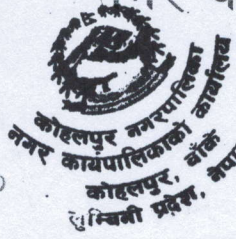 कोहलपुर नगरपालिका
नगर कार्यपालिकाको कार्यालय
कोहलपुर, बाँके
लुम्बिनी प्रदेश, नेपा